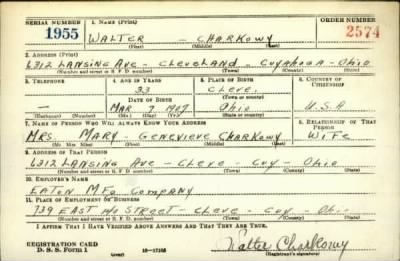 SERIAL NUMBER 1. NAME (Print) ORDER NUMBER
1955 WALTER — CHARKOWY 2574
(First) (Middle) (Last)
2. ADDRESS (Print)
6312 LANSING AVE - CLEVELAND - CUYAHOGA - OHIO
(Number and street or R. F. D. number) (Town) (County) (State)
3. TELEPHONE 4. AGE IN YEARS 5. PLACE OF BIRTH 6. COUNTRY OF CITIZENSHIP
33 CLEVE.
DATE OF BIRTH (Town or county)
— MAR 7 1907 OHIO U.S.A
(Exchange) (No.) (Mo.) (Day) (Yr.) (State or country)
7. NAME OF PERSON WHO WILL ALWAYS KNOW YOUR ADDRESS 8. RELATIONSHIP OF THAT PERSON
MRS. MARY - GENEVIEVE CHARKOWY WIFE
(Mr. Mrs. Miss) (First) (Middle) (Last)
9. ADDRESS OF THAT PERSON
6312 LANSING AVE - CLEVE - CUY - OHIO
(Number and street or R. F. D. number) (Town) (County) (State)
10. EMPLOYER'S NAME
EATON MFG COMPANY
11. PLACE OF EMPLOYMENT OR BUSINESS
739 EAST 140 STREET - CLEVE CUY - OHIO
(Number and street or R. F. D. number) (Town) (County) (State)
I AFFIRM THAT I HAVE VERIFIED ABOVE ANSWERS AND THAT THEY ARE TRUE.
REGISTRATION CARD
D. S. S. Form 1 16—17105 Walter Charkowy
(Registrant's signature)